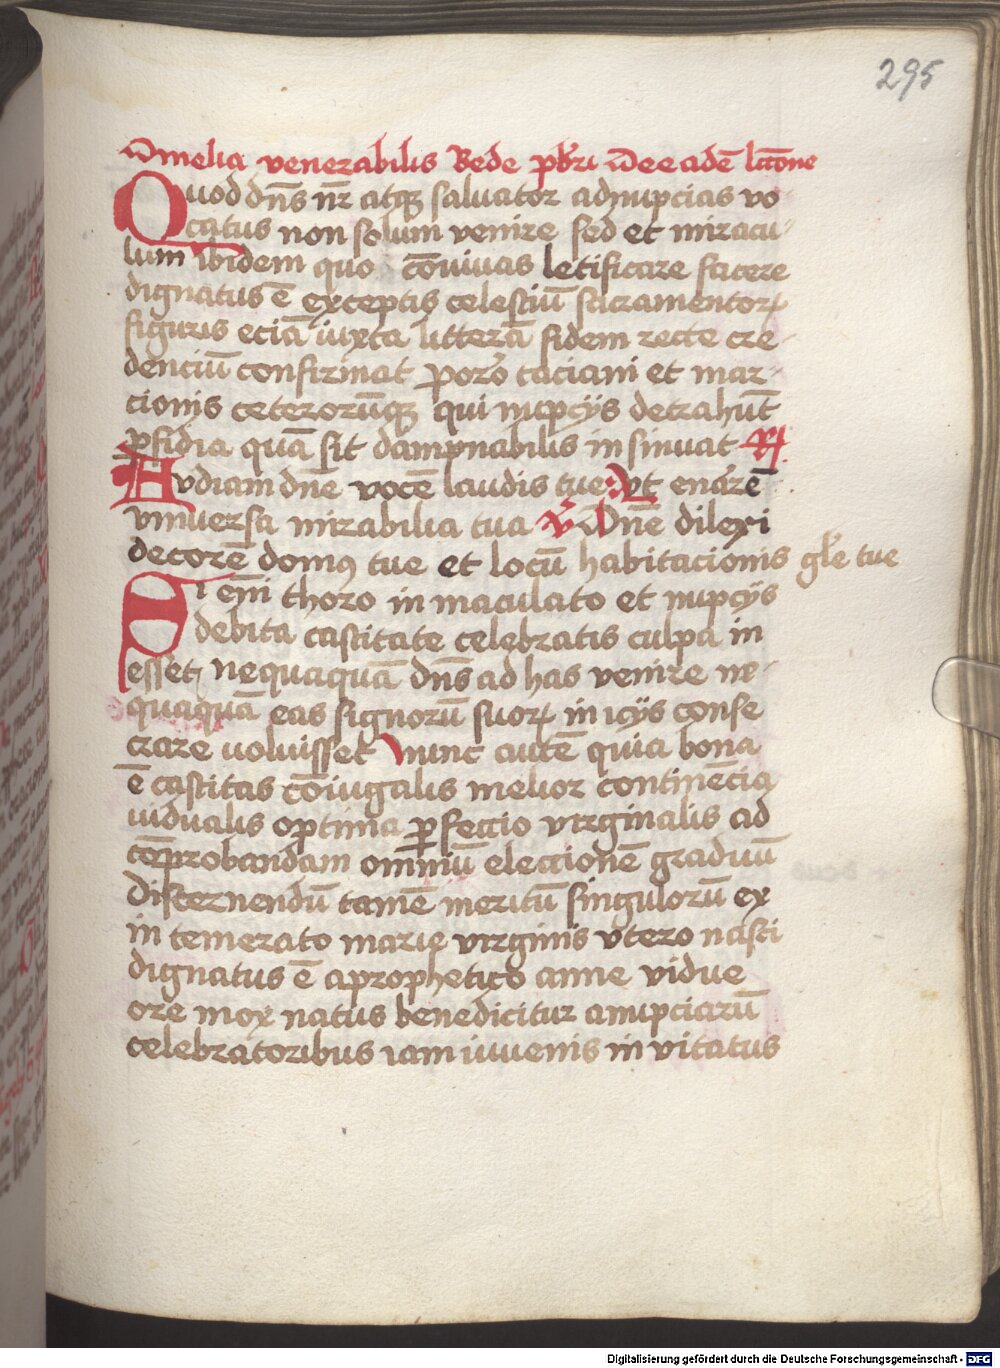 295
Omelia venerabilis Bede pb̄ri Dee adē lcōne
Quod dn̄s nr̄ atqꝫ saluator ad nupcias vo
catus non solum venire sed et miracu
lum ibidem quo cōuiuas letificare facere
dignatus ē exceptis celestiū sacramentoꝝ
figuris eciā iuxta litterā fidem recte cre
denciū confirmat porro taciani et mar
cionis ceterorūqꝫ qui nupcijs detrahūt
ꝑfidia quā sit dampnabilis insinuat R̄
Audiam dn̄e vocē laudis tue Vt enarrē
vniuersa mirabilia tua V̄ Dn̄e dilexi
decorē domꝰ tue et locū habitacionis gl̄e tue
Si em̄ thoro in maculato et nupcijs
debita castitate celebratis culpa in
esset nequaquā dn̄s ad has venire ne
quaquā eas signorū suoꝝ inicijs conse
crare voluisset nunc autē quia bona
ē castitas cōiugalis melior continēcia
uidualis optima ꝑfectio virginalis ad
cōprobandam omniū eleccionē graduū
discernendū tamē meritū singulorū ex
in temerato marie virginis vtero nasci
dignatus ē a prophetico anne vidue
ore mox natus benedicitur a nupciarū
celebratoribus iam iuuenis in vitatus
Digitalisierung gefördert durch die Deutsche Forschungsgemeinschaft - DFG